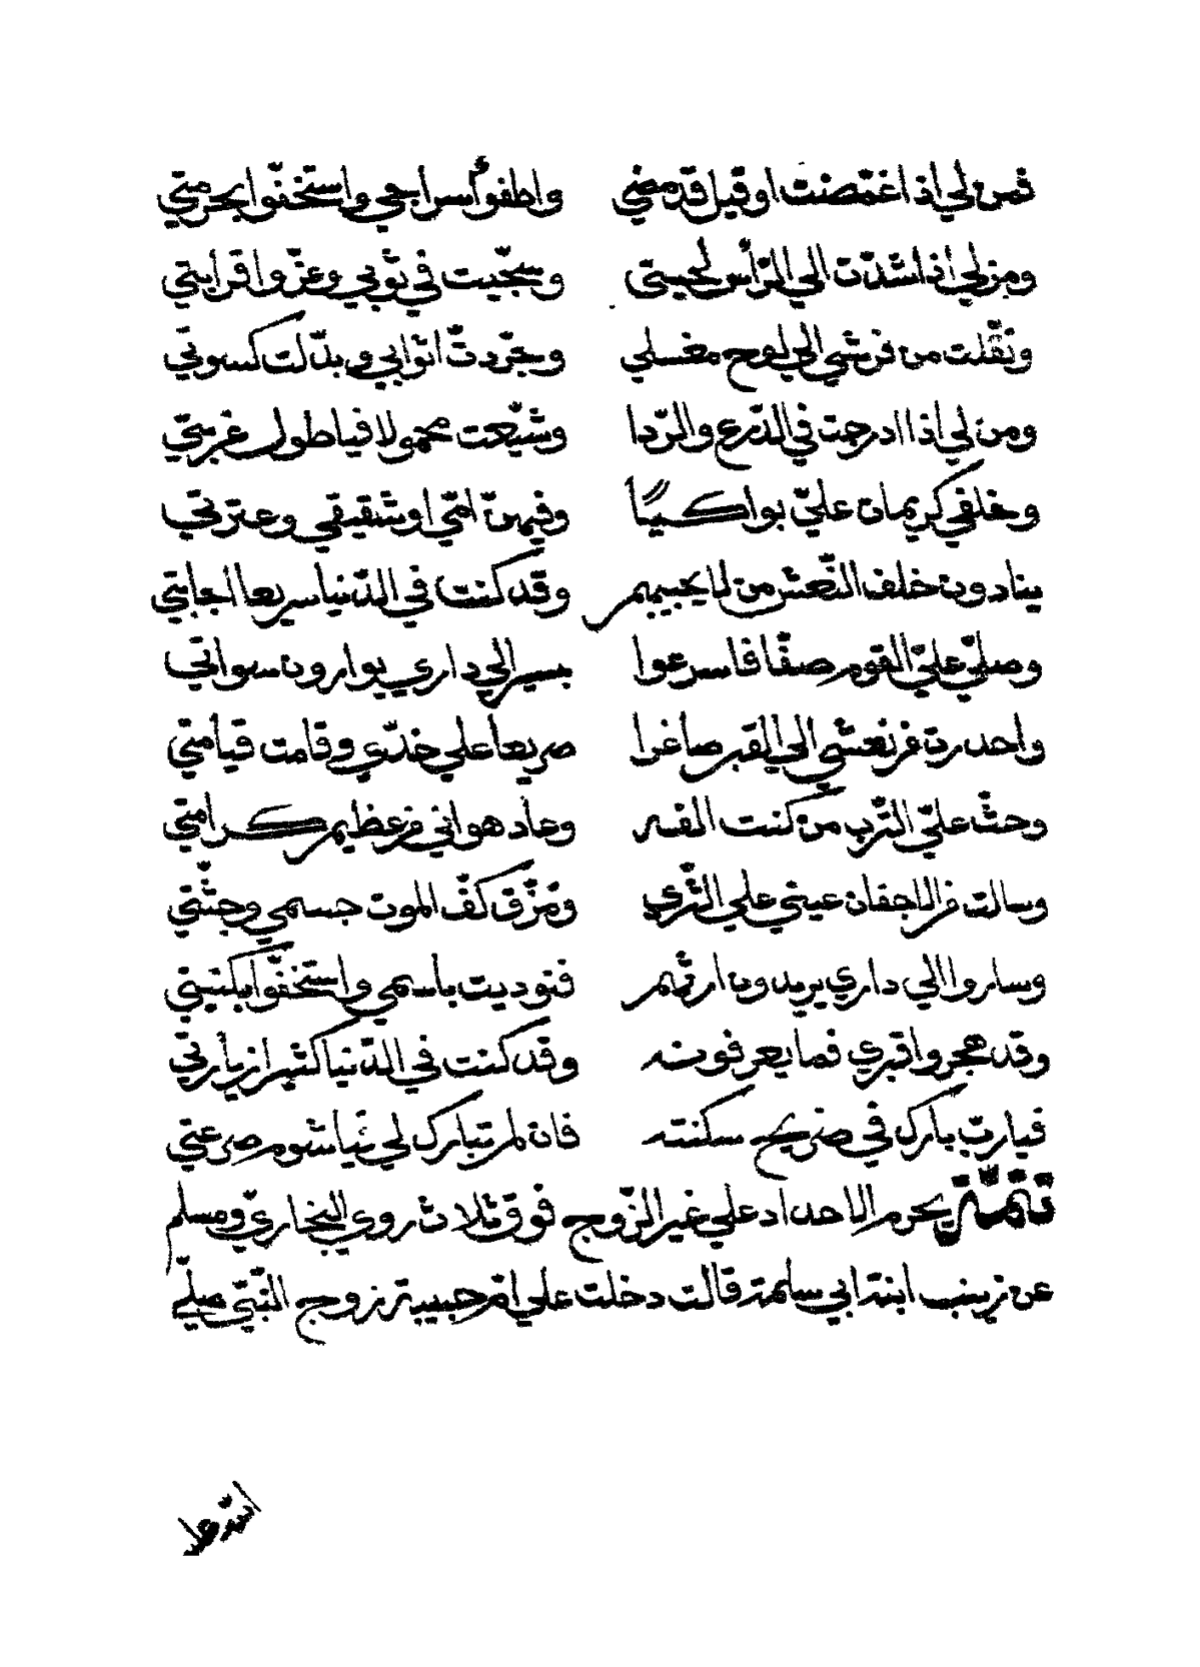 فمن لي اذا غمّضت او قيل قد مضي واطفوُا سراجي واستخفّوا بحرمتي
ومن لي اذا شدّت الي الرّأس لحيتي وسجّيت في ثوبي وعزّوا قرابتي
ونقّلت من فرشي الي لوح مغسلي وجرّدت اثوابي وبدّلت كسوتي
ومن لي اذا ادرجت في الدّرع والرّدا وشيّعت محمولا فيا طول غربتي
وخلفي كريمات عليّ بواكيًا وفيهنّ امّي او شقيقي وعترتي
ينادون خلف النّعش من لا يجيبهم وقد كنت في الدّنيا سريعا اجابتي
وصلّي عليّ القوم صفّا فاسرعوا بسير الي داري يوارون سواتي
واحدرت من نعشي الي القبر صاغرا صريعا علي خدّي وقامت قيامتي
وحثّ عليّ التّرب من كنت الفه وعاد هواني من عظيم كرامتي
وسالت من الاجفان عيني علي الثّري ومزّق كفّ الموت جسمي وجثّتي
وساروا الي داري يريدون ارثهم فنوديت باسمي واستخفّوا بكنيتي
وقد هجروا قبري فما يعرفونه وقد كنت في الدّنيا كثيرا زيارتي
فيا ربّ بارك في ضريح سكنته فان لم تبارك لي فيا شوم صرعتي
تتمّة يحرم الاحداد علي غير الزّوج فوق ثلاث روي البخاريّ ومسلم
عن زينب ابنة ابي سلمة قالت دخلت علي امّ حبيبة زوج النّبيّ صلّي
اللّه عليه